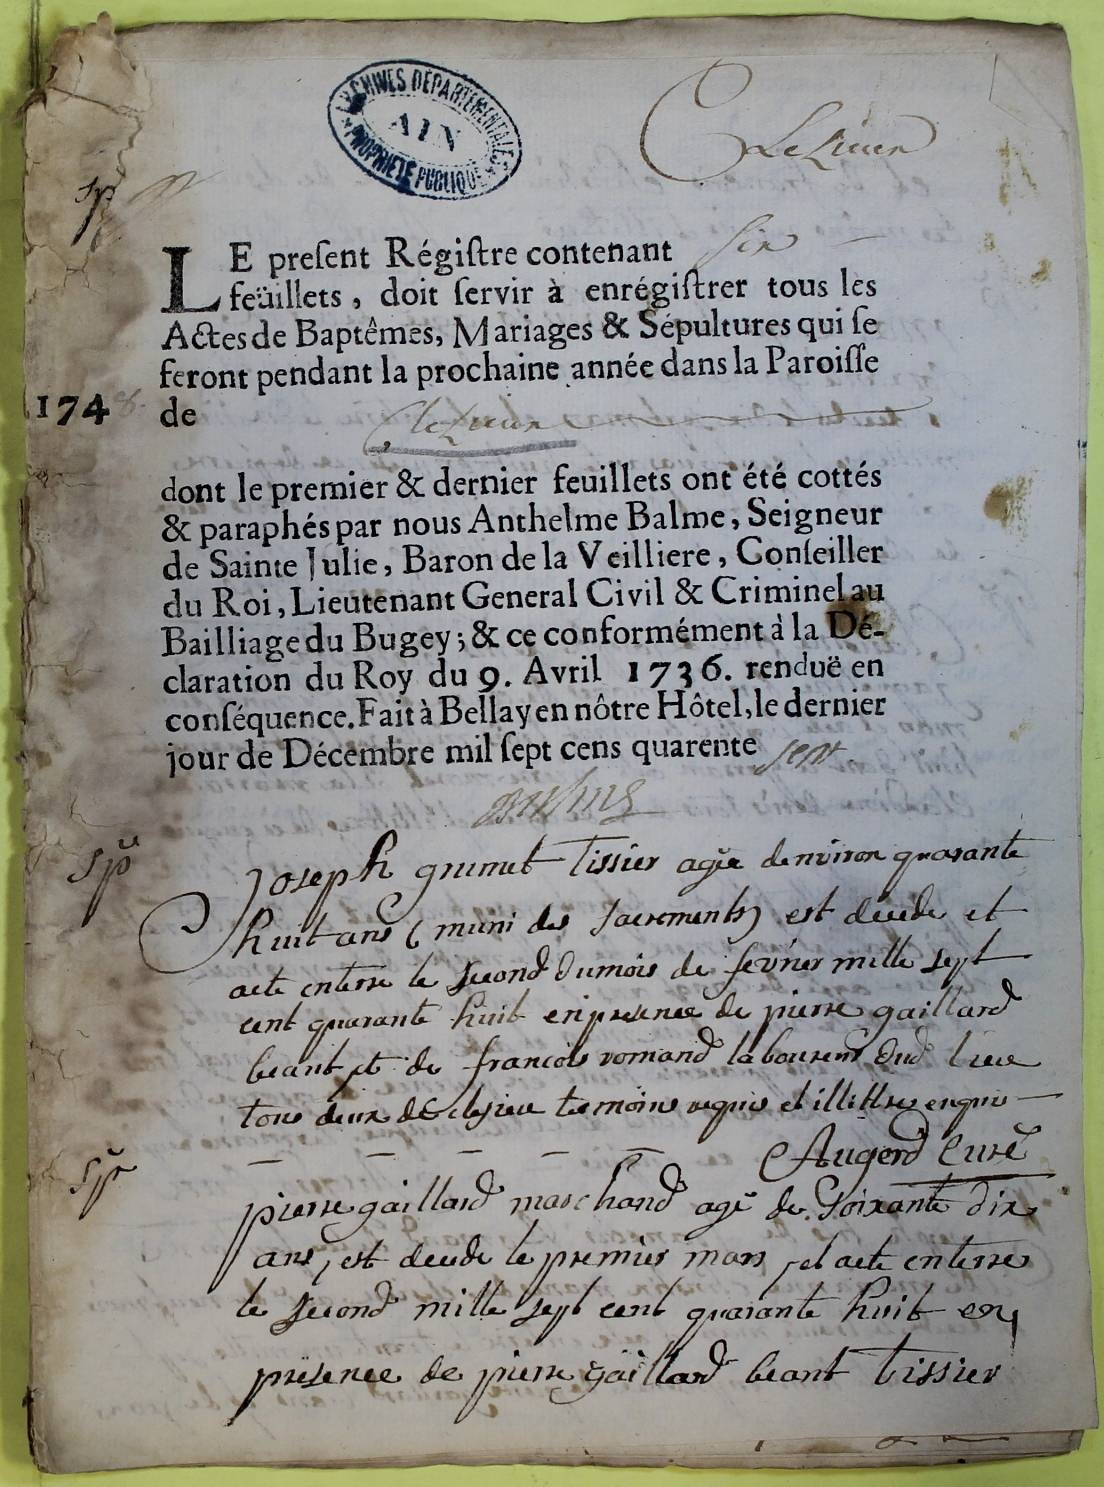 ARCHIVES DÉPARTEMENTALES
AIN
PROPRIÉTÉ PUBLIQUE
Cleizieu
Sp.re
LE preſent Régiſtre contenant six
feüillets, doit ſervir à enrégiſtrer tous les
Actes de Baptêmes, Mariages & Sépultures qui ſe
feront pendant la prochaine année dans la Paroiſſe
1748. de Cleizieu
dont le premier & dernier feuillets ont été cottés
& paraphés par nous Anthelme Balme, Seigneur
de Sainte Julie, Baron de la Veilliere, Conſeiller
du Roi, Lieutenant General Civil & Criminel au
Bailliage du Bugey; & ce conformément à la Dé-
claration du Roy du 9. Avril 1736. renduë en
conſéquence. Fait à Bellay en nôtre Hôtel, le dernier
jour de Décembre mil ſept cens quarente sept
Balme
Sp.re
Joseph grumet Tissier agée denviron quarante
huit ans (muni des Sacrements) est decede et
aete enterre le second du mois de fevrier mille sept
cent quarante huit en presence de pierre gaillard
beant et de francois romand laboureur dud lieu
tous deux de clesieu temoins requis et illittres enquis
Augerd Curé
Sp.re
pierre gaillard marchand agé de Soixante dix
ans, est decede le premier mars, et aete enterre
le second mille sept cent quarante huit en
presence de pierre gaillard beant Tissier